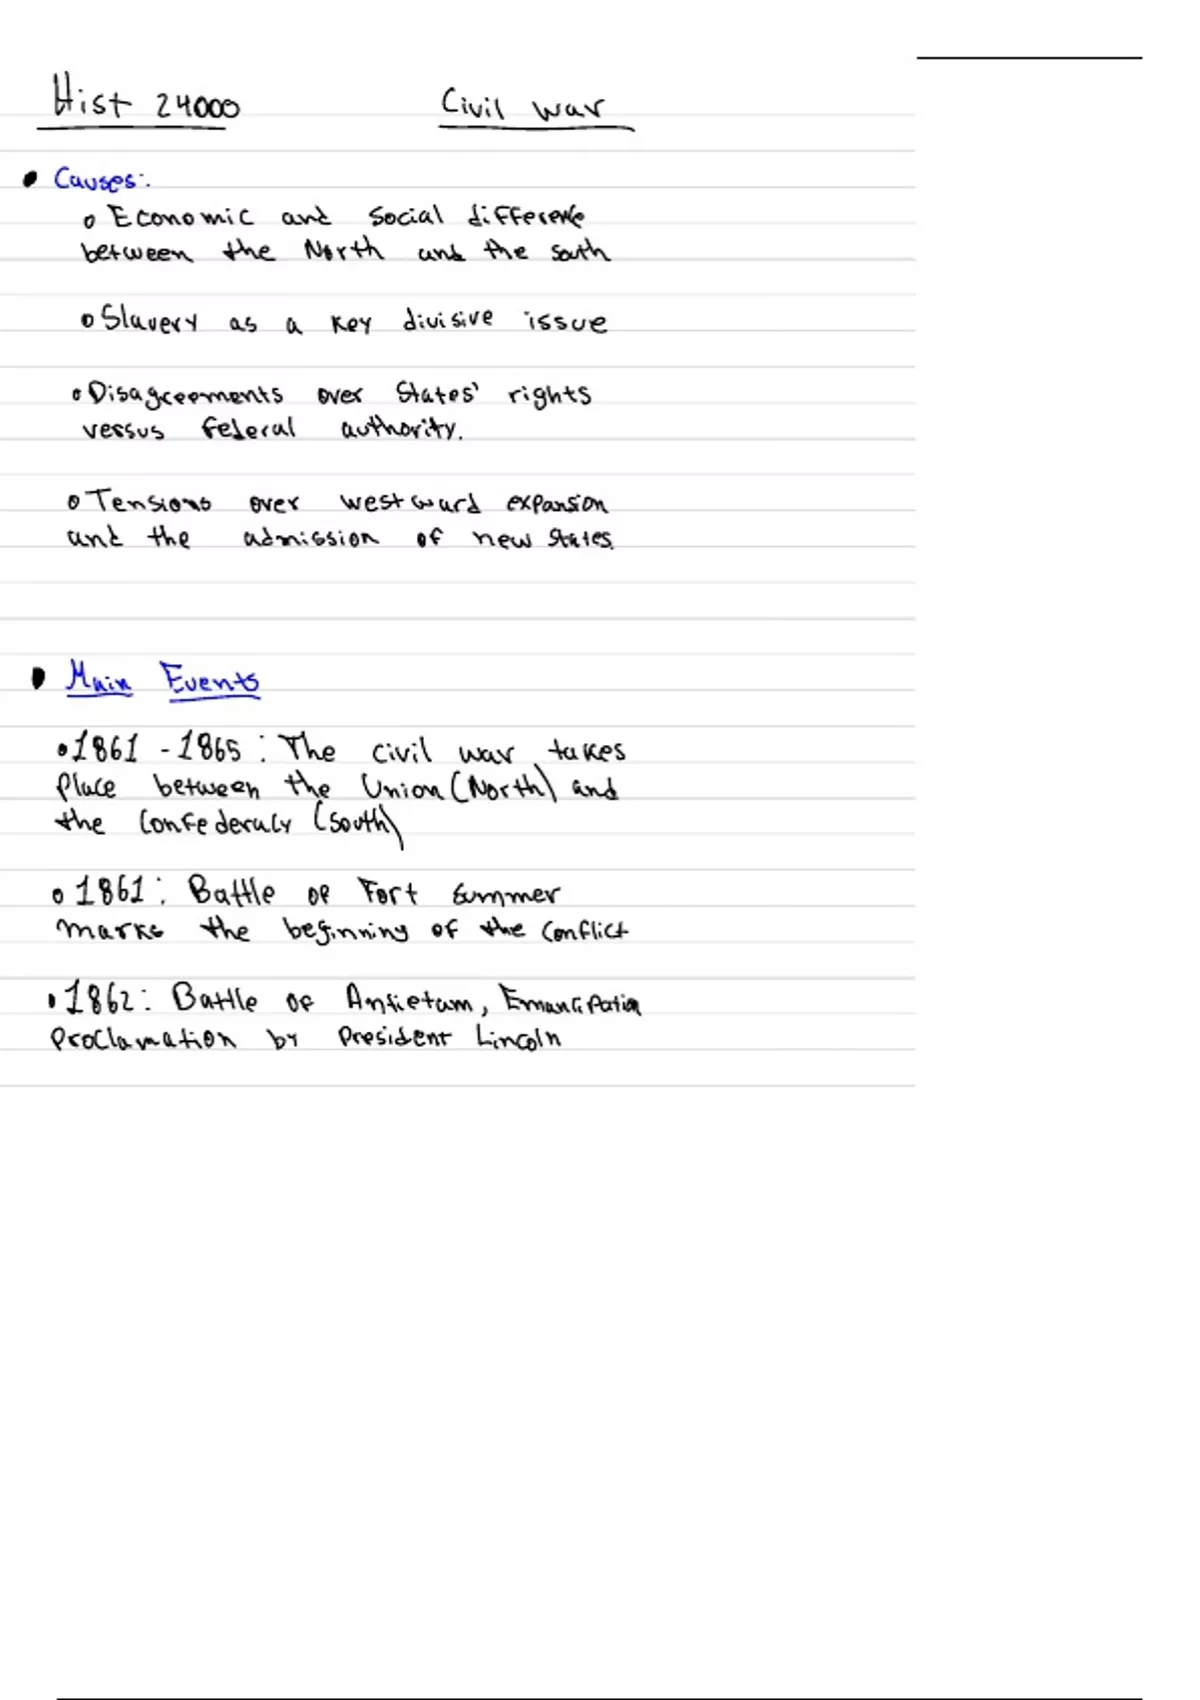 Hist 24000 Civil war
Causes:
Economic and social difference
between the North and the south
Slavery as a key divisive issue
Disagreements over States' rights
versus federal authority.
Tensions over westward expansion
and the admission of new states.
Main Events
1861 - 1865 : The civil war takes
place between the Union (North) and
the Confederacy (South)
1861 : Battle of Fort Summer
marks the beginning of the conflict
1862 : Battle of Antietam, Emancipation
Proclamation by President Lincoln